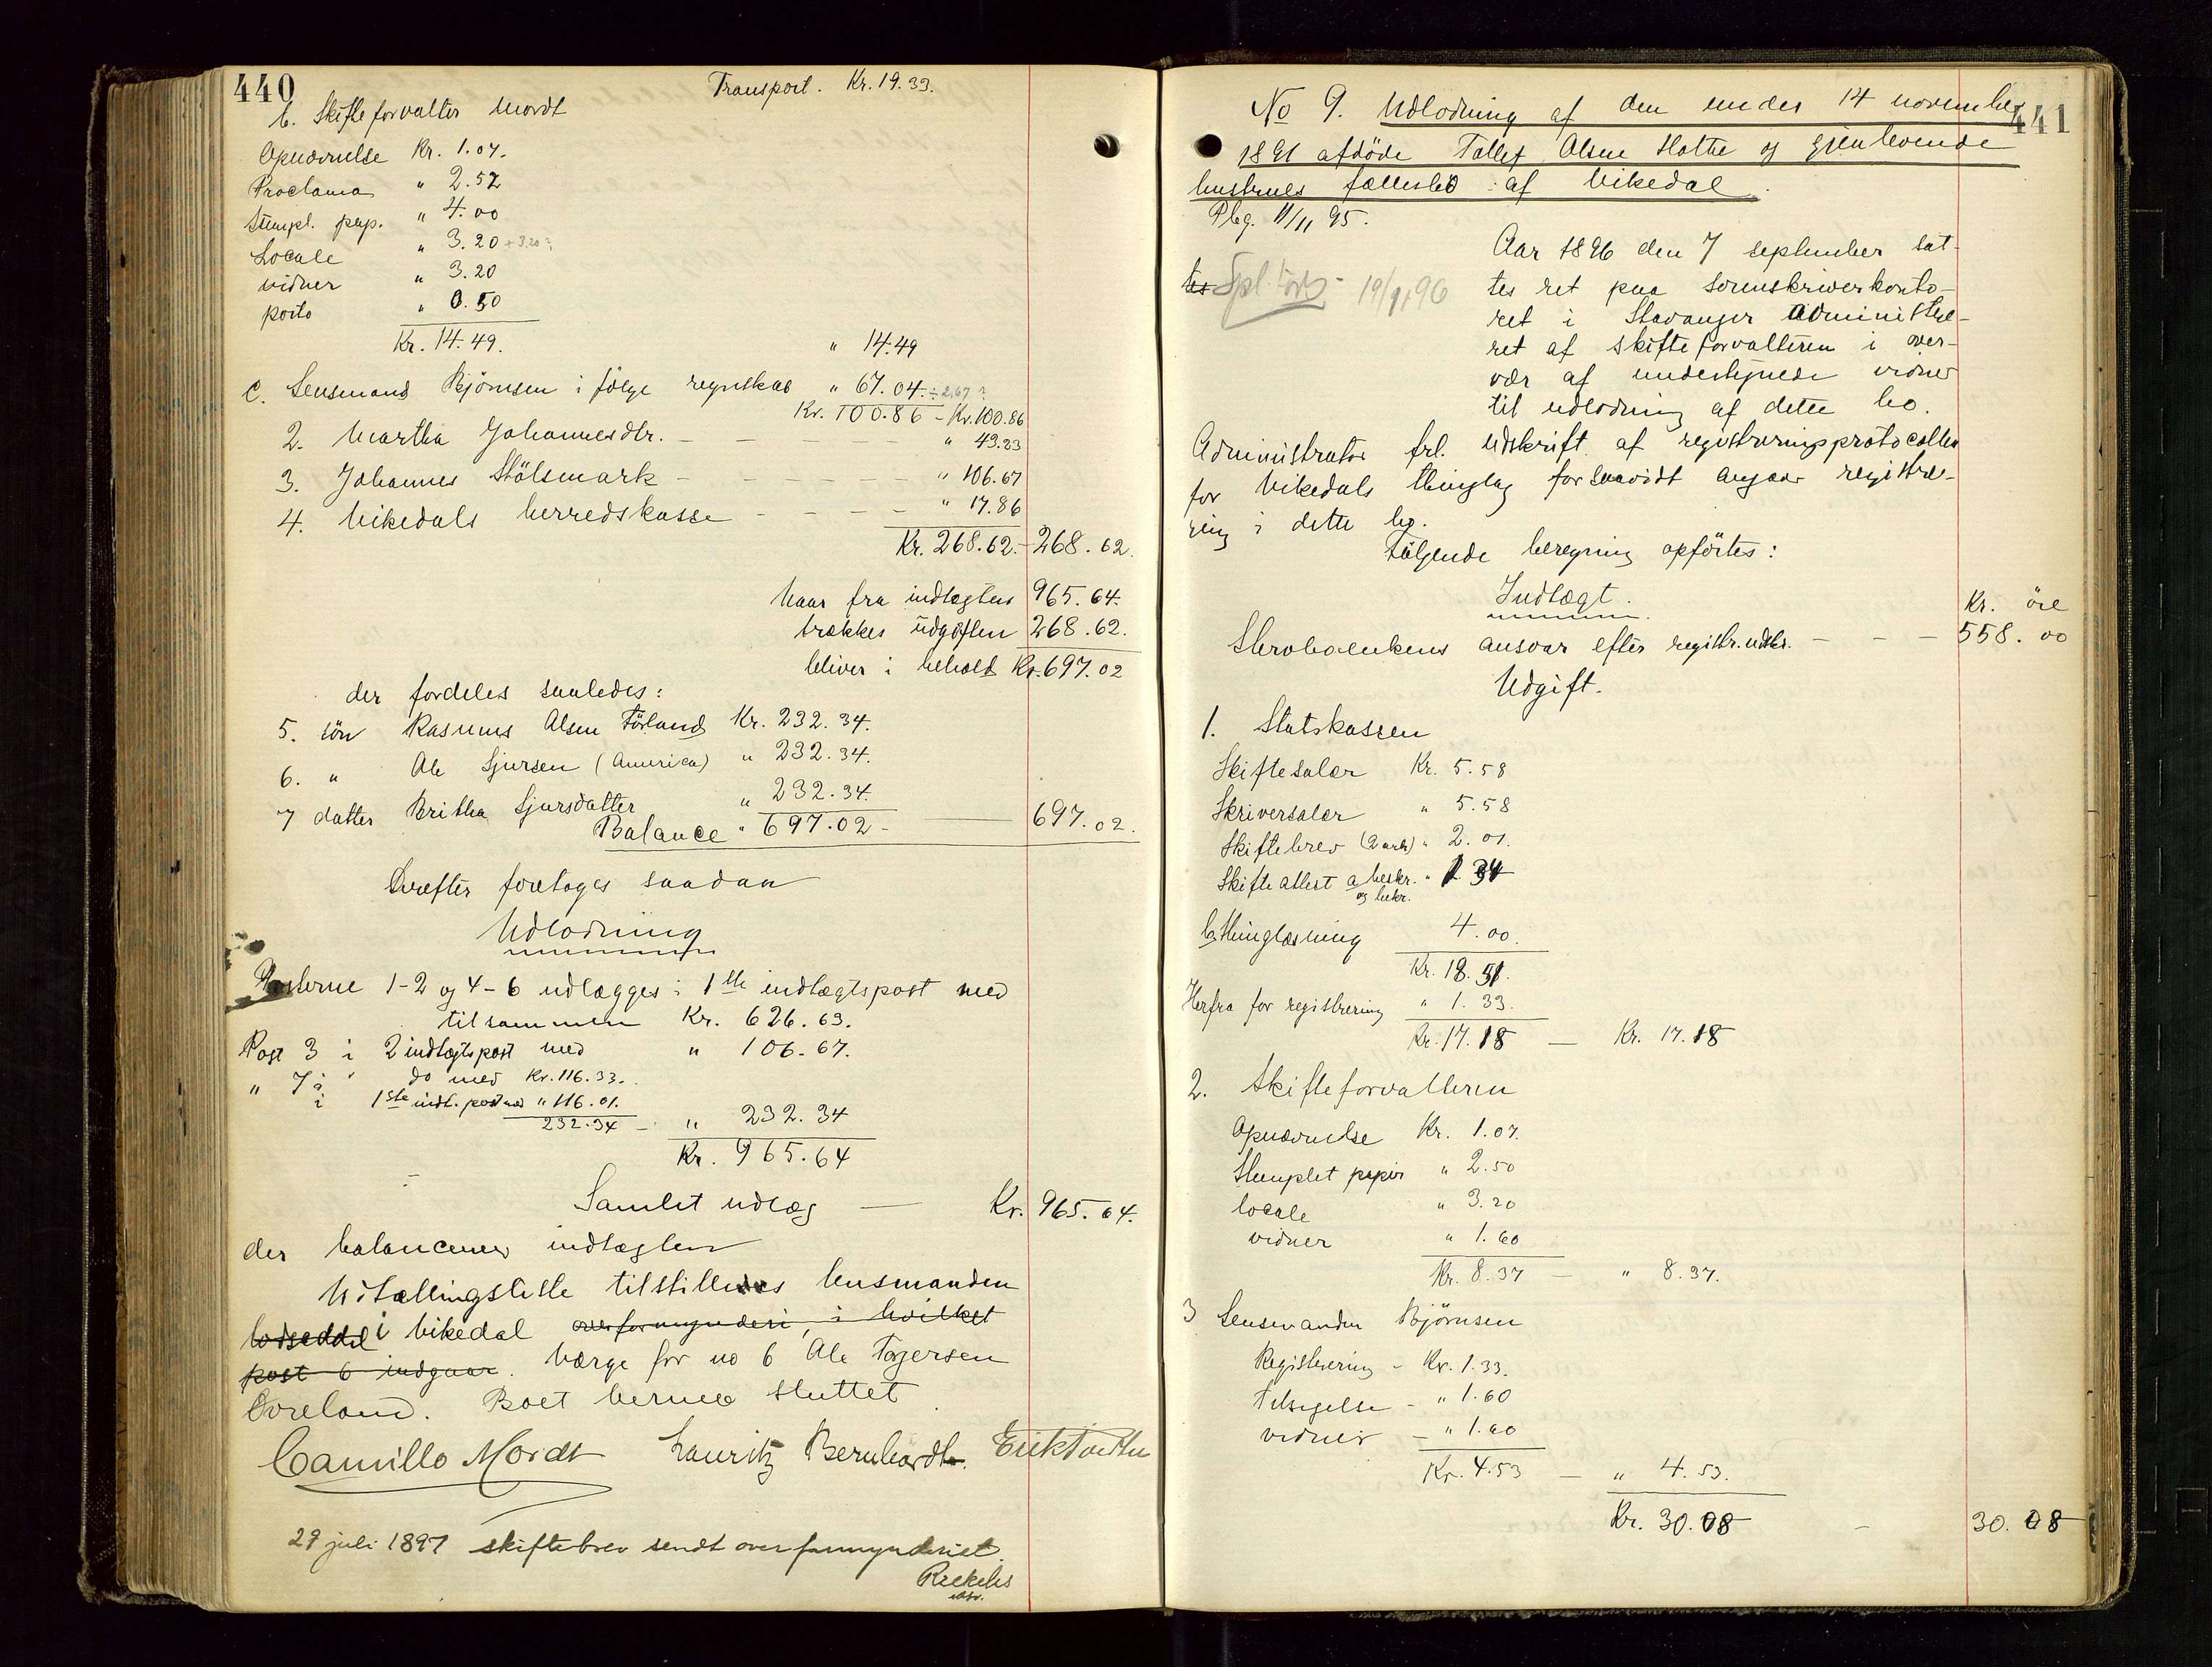 440
Transport. Kr. 19.33.
b. Skifteforvalter Mordt
Opnævnelse Kr. 1.07.
Proclama " 2.52
Stempl. pap. " 4.00
Locale " 3.20 + 3.20?
vidner " 3.20
porto " 0.50
Kr. 14.49. " 14.49
c. Lensmand Bjørnsen i følge regnskab " 67.04. ÷ 2,67?
Kr. 100.86 - Kr. 100.86
2. Martha Johannesdtr. - - - - " 49.23
3. Johannes Stölsmark - - - - - " 106.67
4. Vikedals herredskasse - - - - " 17.86
Kr. 268.62. - 268.62.
Naar fra indtægten 965.64.
trækkes udgiften 268.62.
bliver i behold Kr. 697.02
der fordeles saaledes:
5. sön Rasmus Olsen Förland Kr. 232.34.
6. " Ole Sjursen (America) " 232.34.
7 datter Britha Sjursdatter " 232.34.
Balance " 697.02 - 697.02.
Derefter foretoges saadan
Udlodning
Posterne 1-2 og 4-6 udlægges i 1ste indtægtspost med
tilsammen Kr. 626.63.
Post 3 i 2 indtægtspost med " 106.67.
" 7 i " do med Kr. 116.33.
i 1ste indt. post med " 116.01.
232.34 - " 232.34
Kr. 965.64
Samlet udlæg — Kr. 965.64.
der balancerer indtægten
Utællingsliste tilstilledes lensmanden
lodseddel i Vikedal overformynderi, i hvilket
post 6 indgaar. Værge for no 6 Ole Torgersen
Dveland. Boet hermed sluttet
Camillo Mordt Lauritz Bernhardt.
29 juli 1897 skiftebrev sendt overformynderiet.
441
No 9. Udlodning af den under 14 november
1891 afdöde Tollef Olsen Hatte og gjenlevende
hustrues fællesbo af Vikedal.
Pbg. 11/11 95.
tes
19/9, 96
Aar 1896 den 7 september sat-
tes ret paa Sorenskriverkonto-
ret i Stavanger administre-
ret af skifteforvalteren i over-
vær af undertegnede vidner
til udlodning af dette bo.
Administrator frl. udskrift af registreringsprotocollen
for Vikedals thinglag forsaavidt angaar registre-
ring i dette bo.
Følgende beregning opförtes:
Indtægt.
Kr. öre
Sterboenkens ansvar efter registr. udtr. - - - 558.00
Udgift.
1. Statskassen
Skiftesalær Kr. 5.58
Skriversalær " 5.58
Skiftebrev (2 ark) " 2.01.
Skifteattest a beskr. " 1.34
og bekr.
b. thinglæsning 4.00.
Kr. 18.51.
Herfra for registrering " 1.33.
Kr. 17.18 — Kr. 17.18
2. Skifteforvalteren
Opnævnelse Kr. 1.07.
Stemplet papir " 2.50
locale " 3.20
vidner " 1.60
Kr. 8.37 — " 8.37.
3 Lensmanden Bjørnsen
Registrering - Kr. 1.33.
Tilsigelse - " 1.60
vidner - " 1.60
Kr. 4.53 — " 4.53.
Kr. 30.08 - 30.08